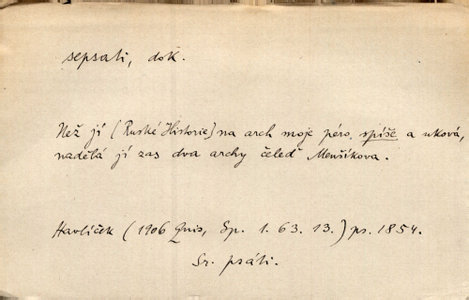 sepsati, dok.
Než jí [Ruské Historie] na arch moje péro spíše a uková,
nadělá jí zas dva archy čeleď Menšikova.
Havlíček (1906 Quis, Sp. 1. 63. 13.) ps. 1854.
Sr. psáti.